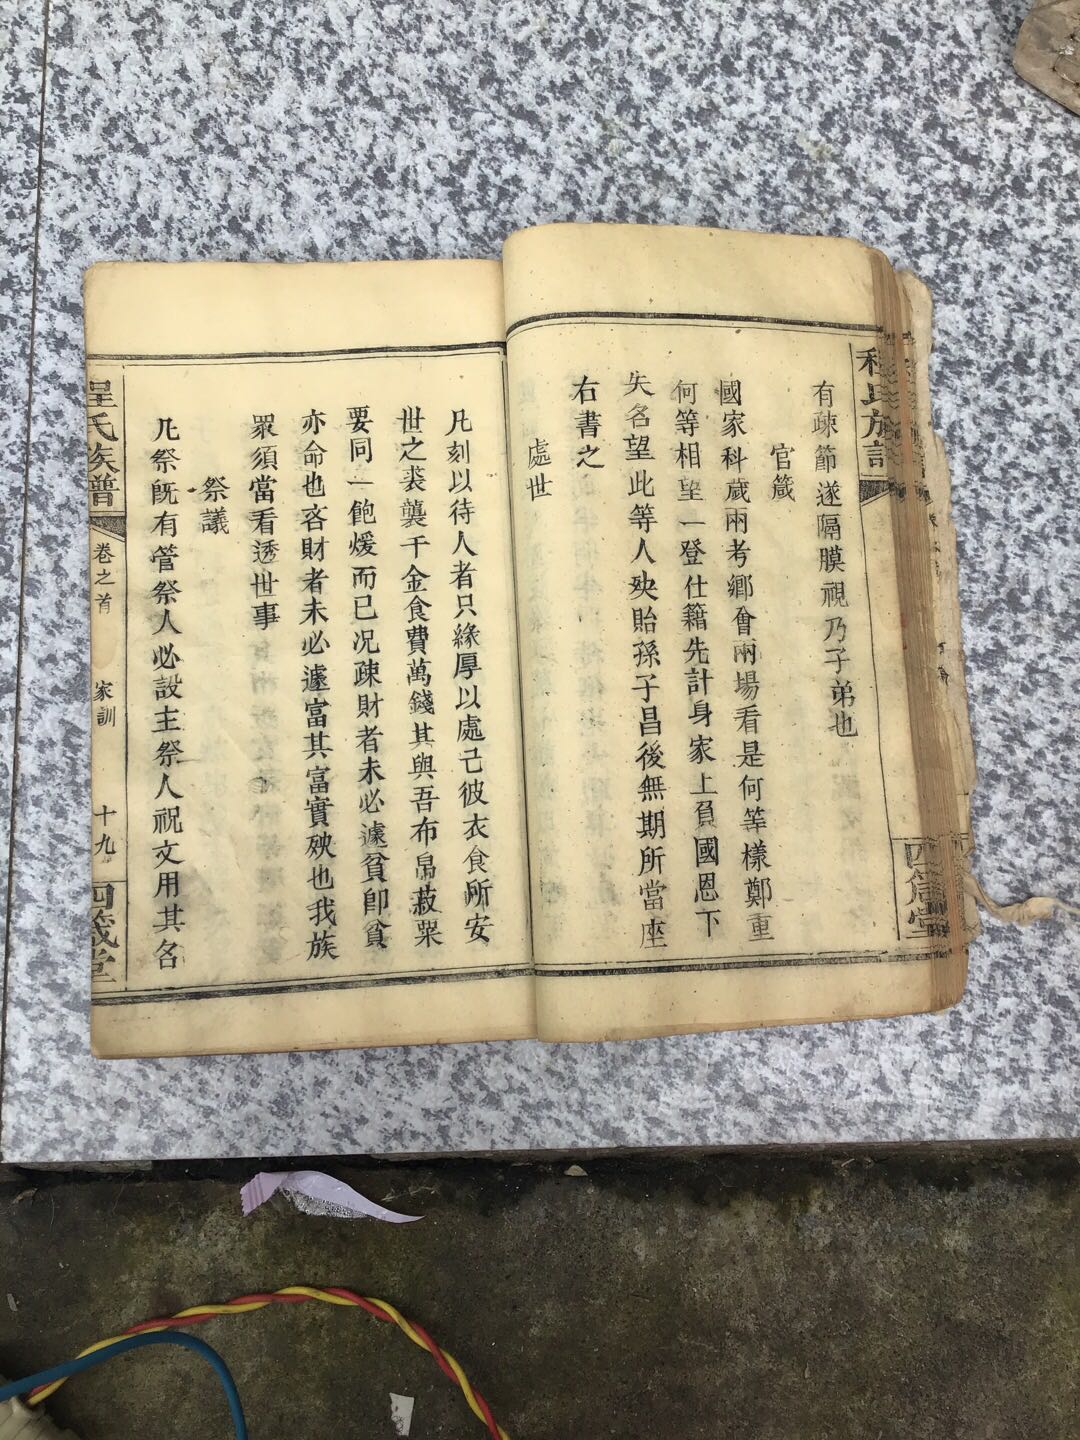 有疎節遂隔膜視乃子弟也
官箴
國家科歲兩考鄉會兩場看是何等樣鄭重
何等相望一登仕籍先計身家上負國恩下
失名望此等人殃貽孫子昌後無期所當座
右書之
處世
凡刻以待人者只緣厚以處己彼衣食所安
世之裘襲千金食費萬錢其與吾布帛菽粟
要同一飽煖而已况疎財者未必遽貧卽貧
亦命也吝財者未必遽富其富實殃也我族
眾須當看透世事
祭議
凡祭旣有管祭人必設主祭人祝文用其名
程氏族譜
卷之首
家訓
十九
四箴堂